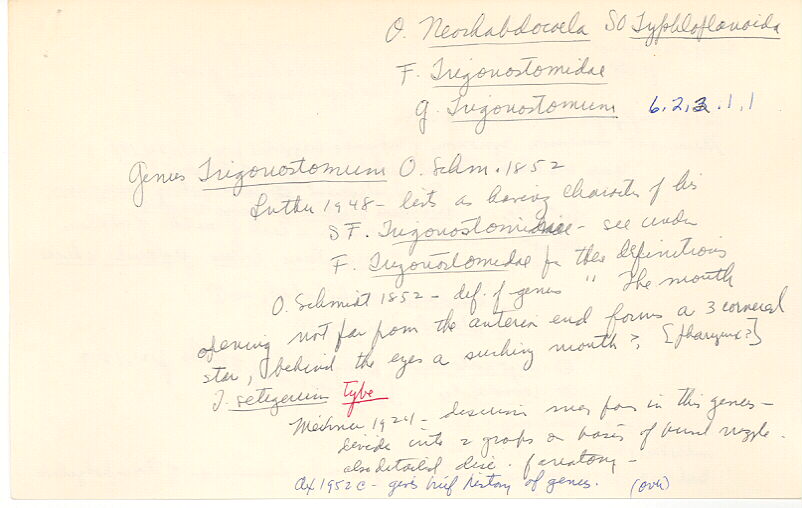 O. Neorhabdocoela SO Typhloplanoida
F. Trigonostomidae
g. Trigonostomum 6.2.3.1.1
Genus Trigonostomum O. Schm. 1852
Luther 1948 - lists as having characters of his
SF. Trigonostominae - see under
F. Trigonostomidae for these definitions
O. Schmidt 1852 - def. of genus " The mouth
opening not far from the anterior end forms a 3 cornered
star, behind the eyes a sucking mouth ", [pharynx?]
T. setigerum Type
Meixner 1924 - discusses in this genus -
divide into 2 groups on basis of bursal nozzle.
also detailed disc. of anatomy -
Ax 1952 c - gives brief history of genus. (over)